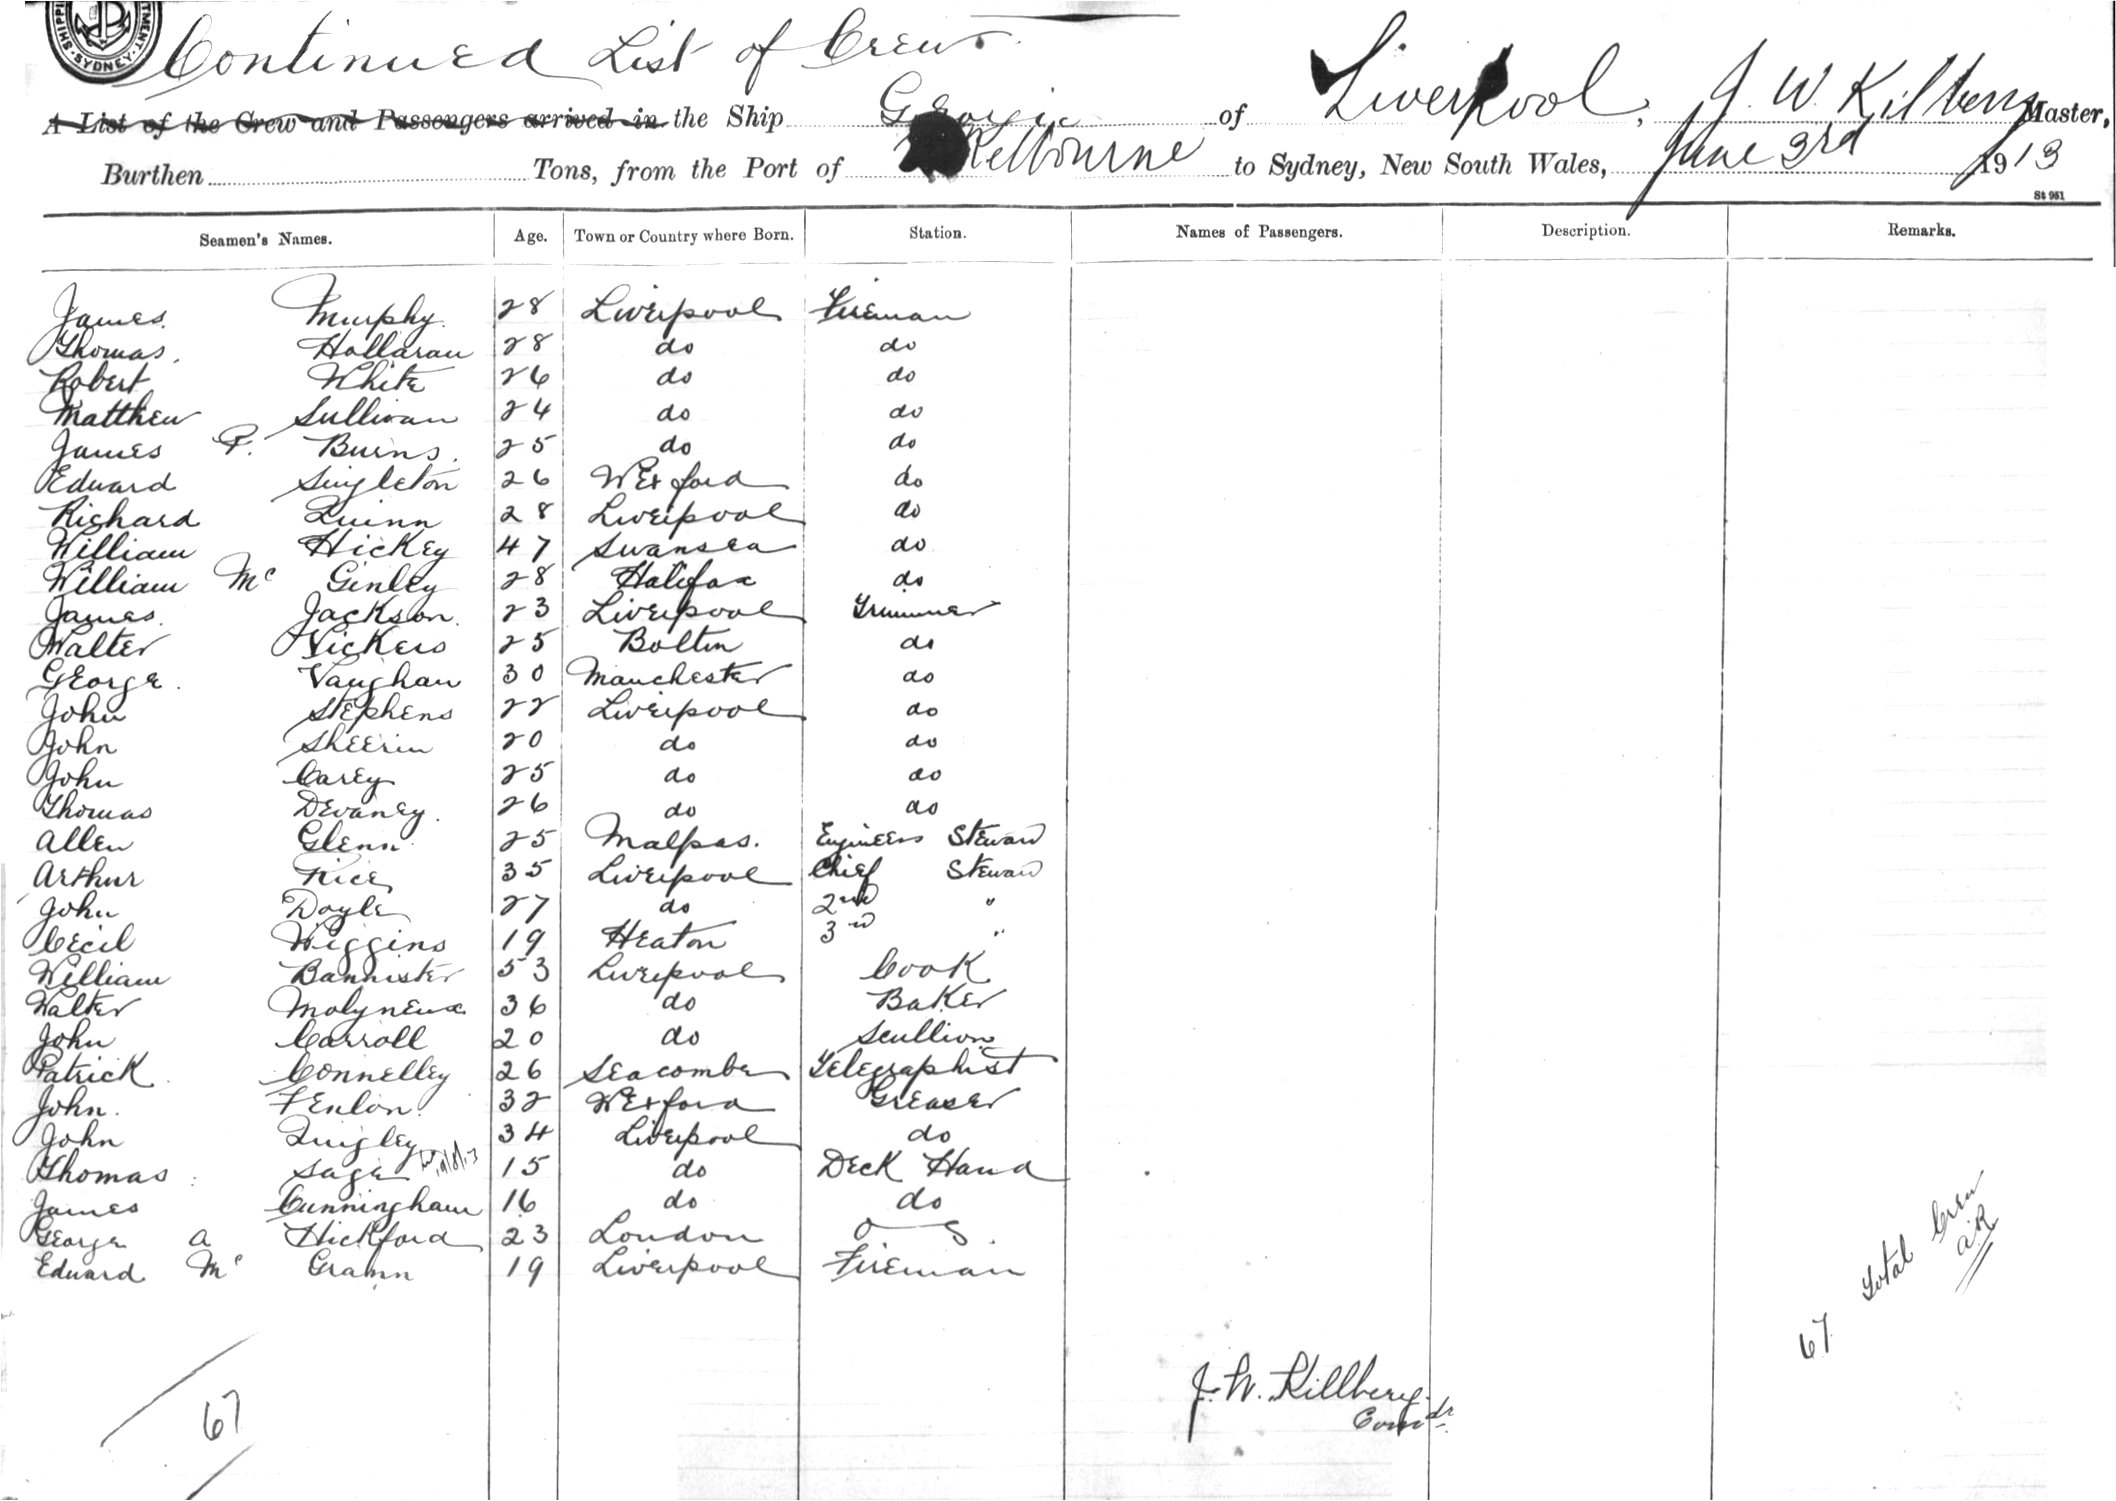 SHIPPI TMENT. SYDNEY
Continued List of Crew
A List of the Crew and Passengers arrived in the Ship Georgic of Liverpool, J. W. Kilberg Master,
Burthen Tons, from the Port of Melbourne to Sydney, New South Wales, June 3rd 1913
St 951
Seamen's Names. Age. Town or Country where Born. Station. Names of Passengers. Description. Remarks.
James Murphy 28 Liverpool Fireman
Thomas Hollaran 28 do do
Robert White 26 do do
Matthew Sullivan 24 do do
James P. Burns 25 do do
Edward Singleton 26 Wexford do
Richard Quinn 28 Liverpool do
William Hickey 47 Swansea do
William Mc Ginley 28 Halifax do
James Jackson 23 Liverpool Trimmer
Walter Vickers 25 Bolton do
George Vaughan 30 Manchester do
John Stephens 22 Liverpool do
John Sheerin 20 do do
John Carey 25 do do
Thomas Devaney. 26 do do
Allen Glenn 25 Malpas. Engineers Steward
Arthur Rice 35 Liverpool Chief Steward
John Doyle 27 do 2nd "
Cecil Wiggins 19 Heaton 3rd "
William Bannister 53 Liverpool Cook
Walter Molyneux 36 do Baker
John Carroll 20 do Scullion
Patrick Connelley 26 Seacombe Telegraphist
John. Fenlon 32 Wexford Greaser
John Quigley 34 Liverpool do
Thomas Sage 15 do Deck Hand
James Cunningham 16 do do
George A Hickford 23 London O S.
Edward Mc Grann 19 Liverpool Fireman
67 Total Crew
67
J. W. Killberg
Comdr